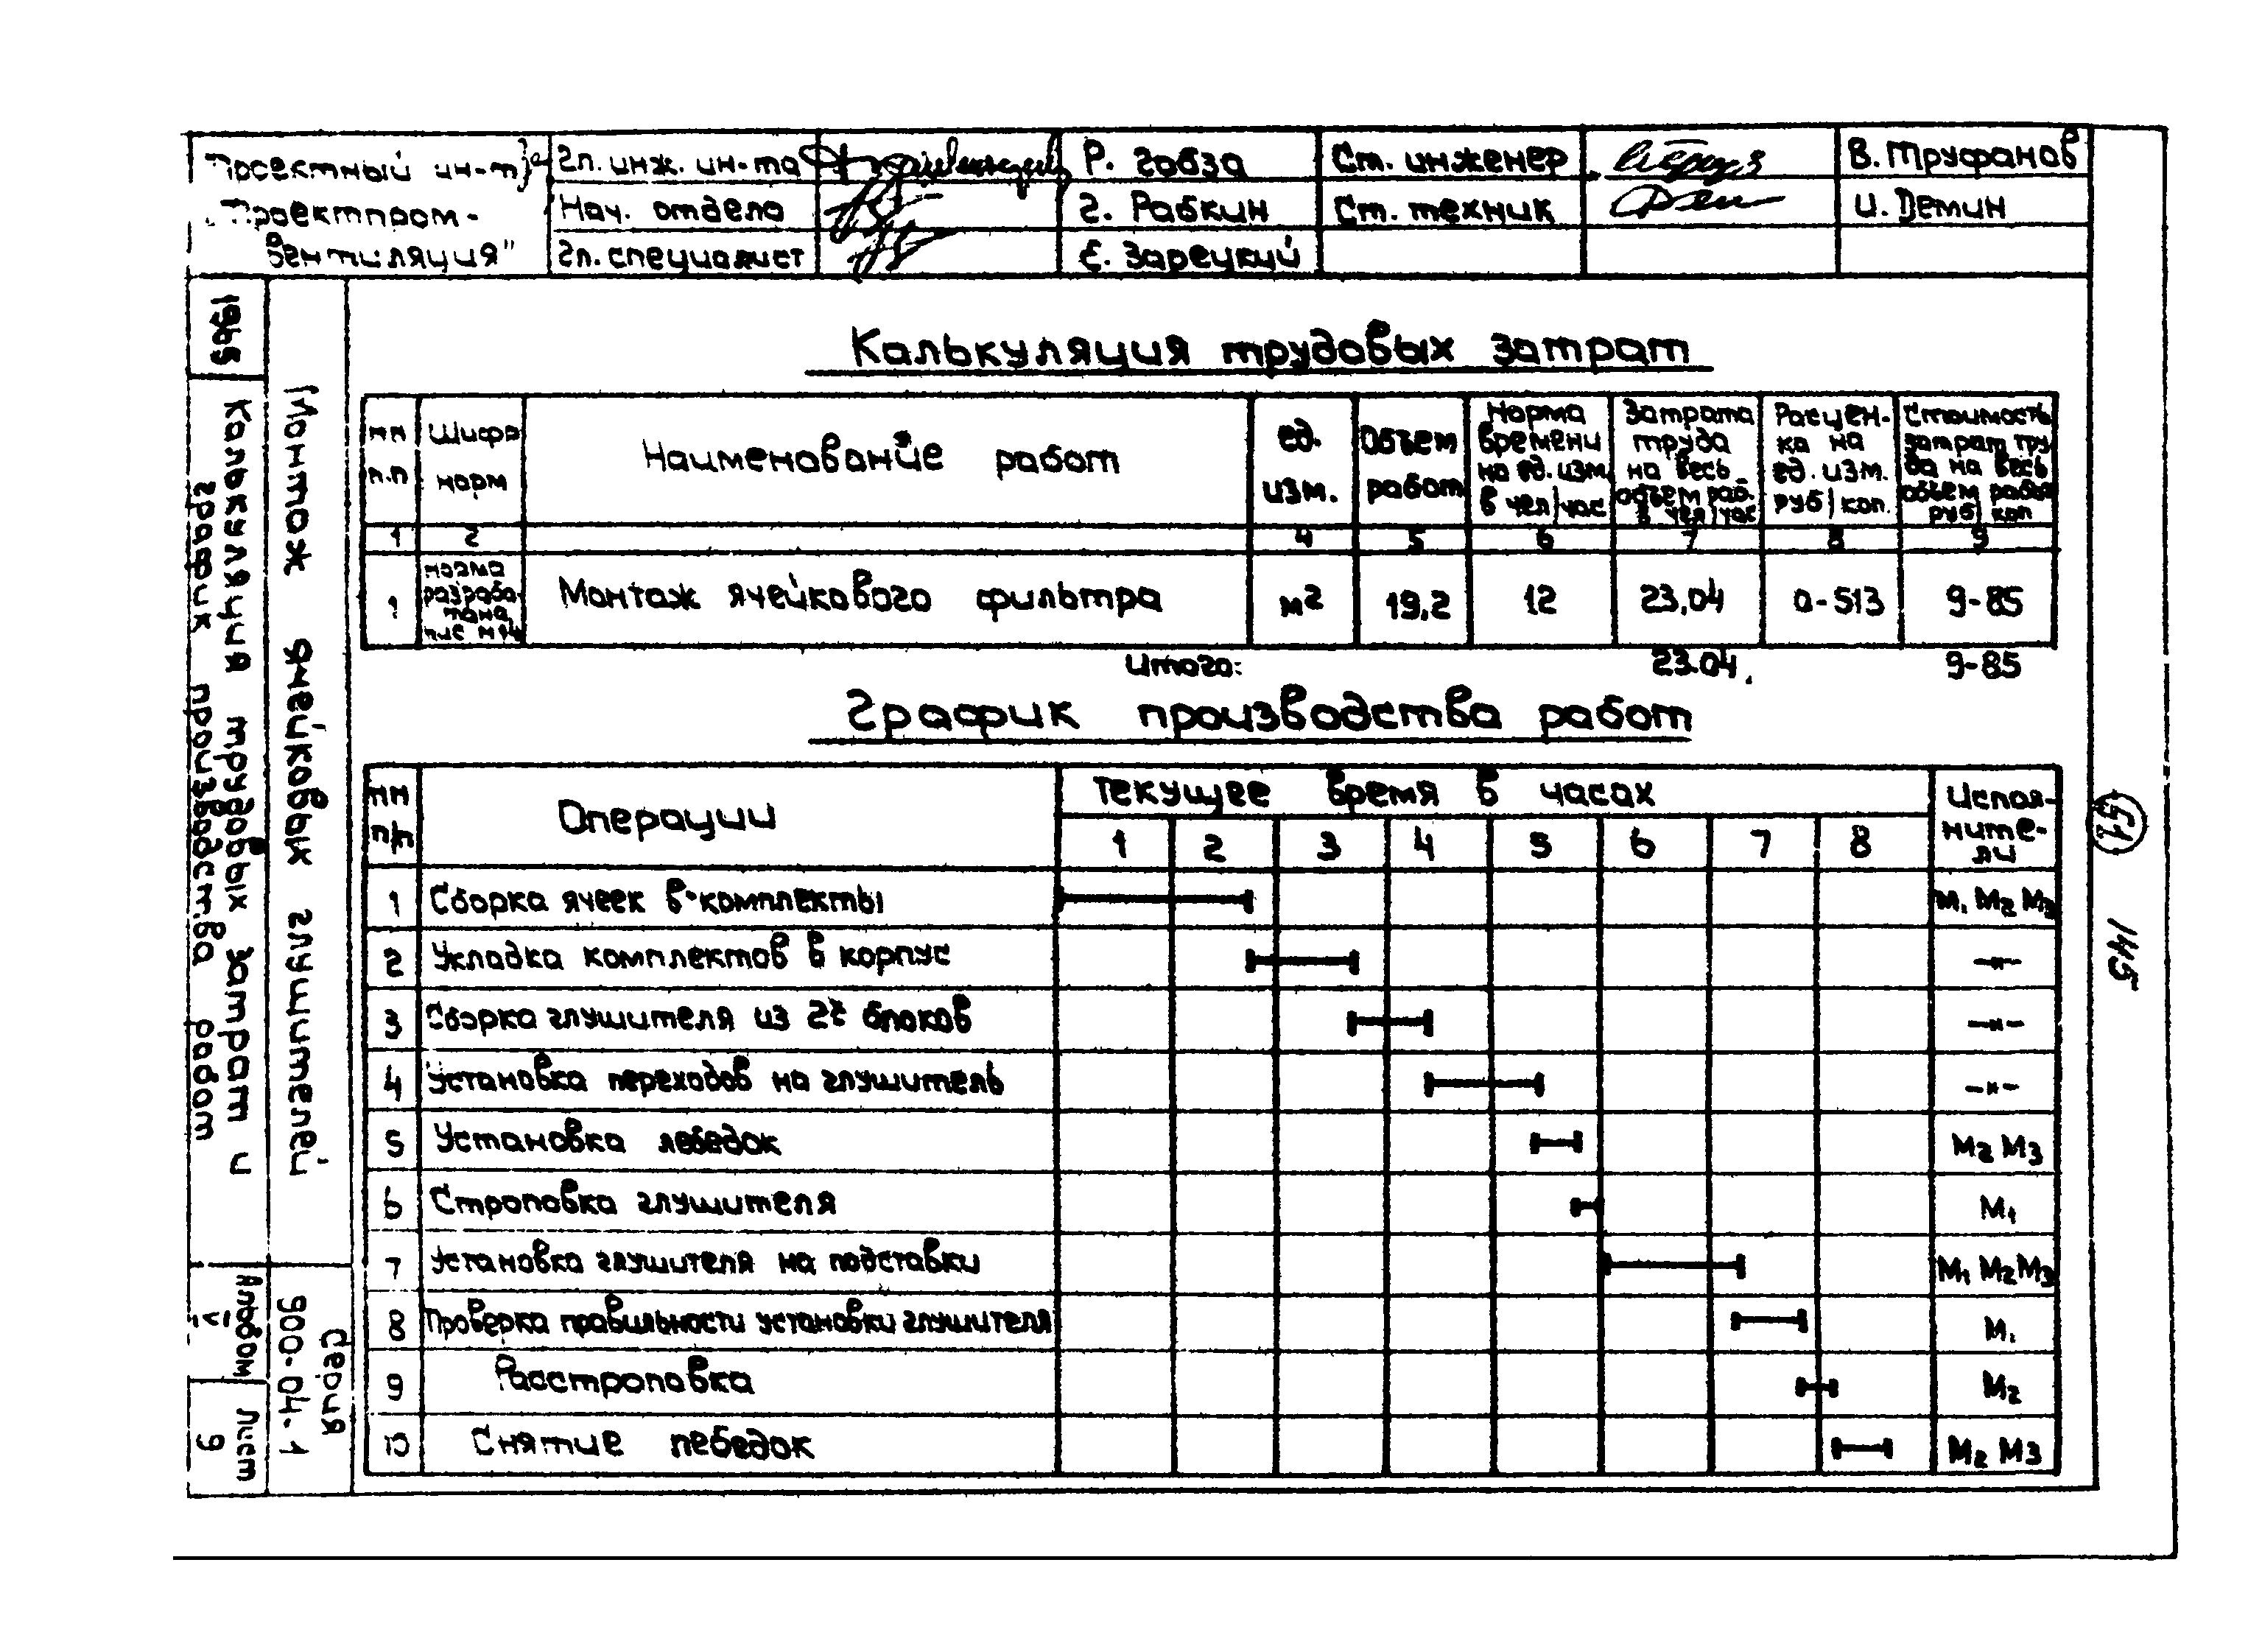 Проектный ин-т
Проектпром-
вентиляция"
Гл. инж. ин-та
Р. Гобза
Ст. инженер
В. Труфанов
Нач. отдела
Г. Рабкин
Ст. техник
И. Демин
Гл. специалист
Е. Зарецкий
1965
Калькуляция трудовых затрат и
график производства работ
Монтаж ячейковых глушителей
Альбом
V
Лист
9
Серия
900-04-1
Калькуляция трудовых затрат
нн
п.п
Шифр
норм
Наименование работ
ед.
изм.
Объем
работ
Норма
времени
на ед. изм.
в чел/час
Затрата
труда
на весь
объем раб.
в чел/час
Расцен-
ка на
ед. изм.
руб/коп.
Стоимость
затрат тру-
да на весь
объем работ
руб/коп
1 2 4 5 6 7 8 9
1
норма
разрабо-
тана
Монтаж ячейкового фильтра
м2
19,2
12
23,04
0-513
9-85
Итого: 23.04 9-85
График производства работ
нн
п/п
Операции
Текущее время в часах
1 2 3 4 5 6 7 8
Испол-
ните-
ли
1 Сборка ячеек в комплекты М1 М2 М3
2 Укладка комплектов в корпус -"-
3 Сборка глушителя из 2х блоков -"-
4 Установка переходов на глушитель -"-
5 Установка лебедок М2 М3
6 Строповка глушителя М1
7 Установка глушителя на подставки М1 М2 М3
8 Проверка правильности установки глушителя М1
9 Расстроповка М2
10 Снятие лебедок М2 М3
145